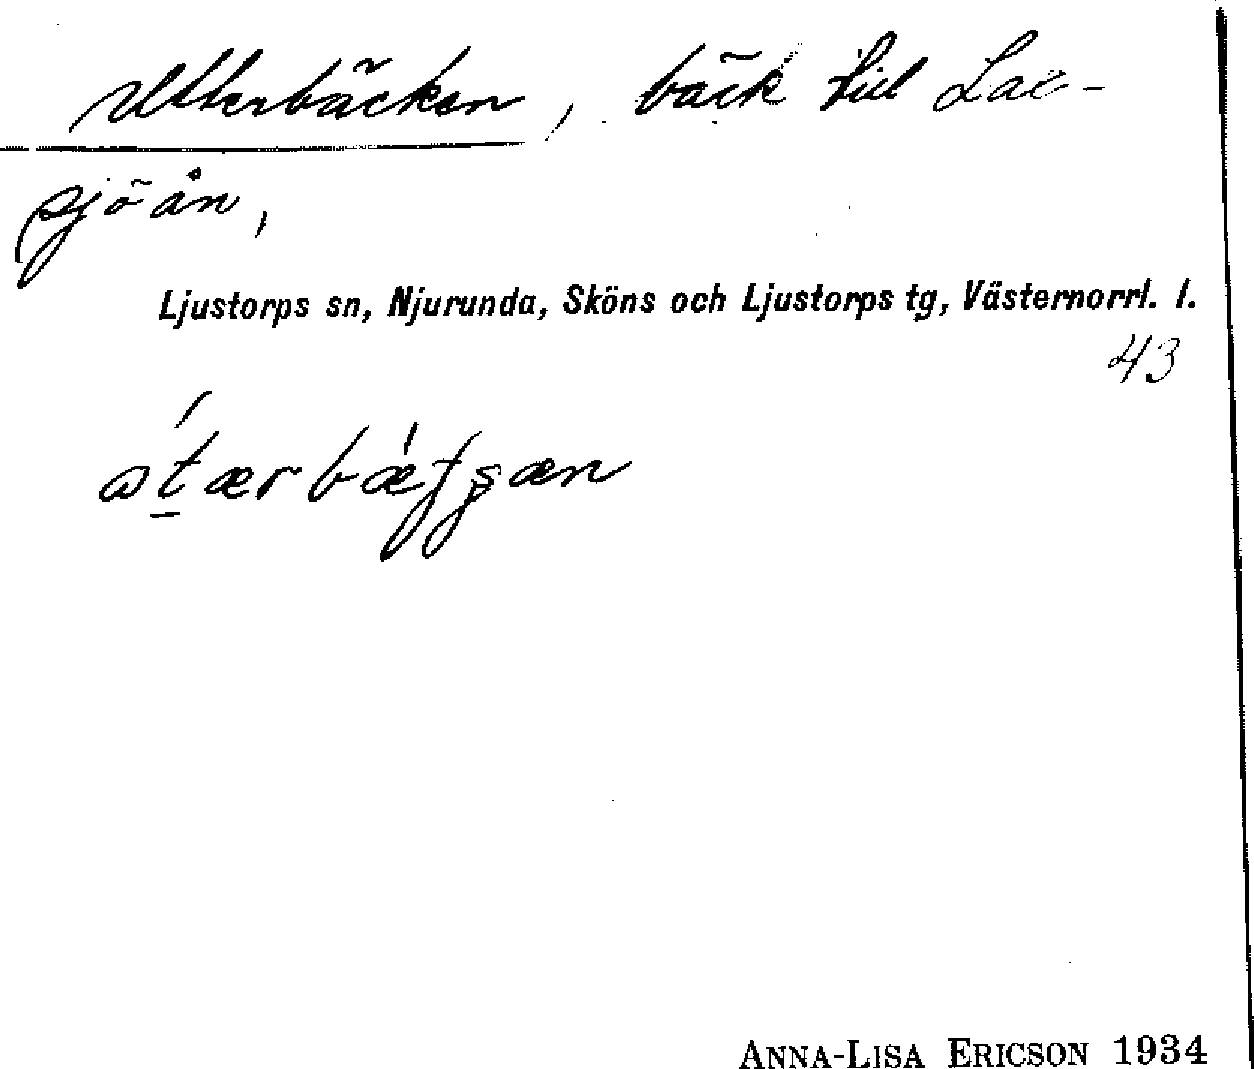 Utterbäcken, bäck till Lac-
sjöån,
Ljustorps sn, Njurunda, Sköns och Ljustorps tg, Västernorrl. l.
43
ANNA-LISA ERICSON 1934